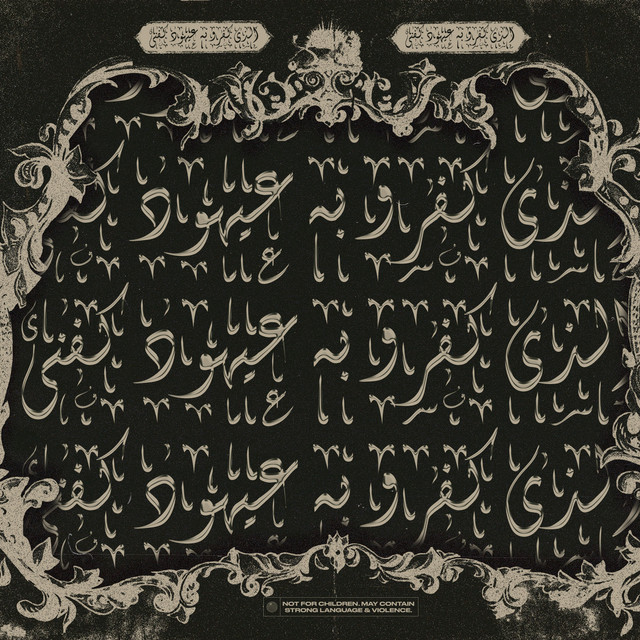 الذي كفرو به عيهود كفني
الذي كفرو به عيهود كفني
لذي كفرو به عيهود كف
لذي كفرو به عيهود كفني
لذي كفرو به عيهود كف
NOT FOR CHILDREN. MAY CONTAIN
STRONG LANGUAGE & VIOLENCE.